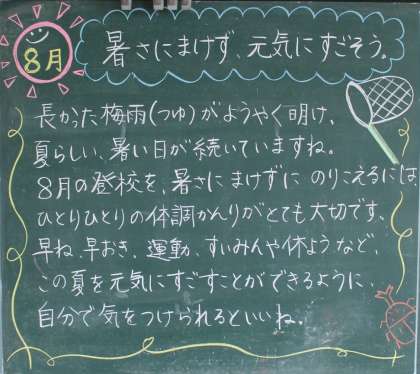 8月
暑さにまけず、元気にすごそう。
長かった梅雨(つゆ)がようやく明け、
夏らしい、暑い日が続いていますね。
8月の登校を、暑さにまけずに のりこえるには、
ひとりひとりの体調かんりがとても大切です。
早ね、早おき、運動、すいみんや休ようなど、
この夏を元気にすごすことができるように、
自分で気をつけられるといいね。